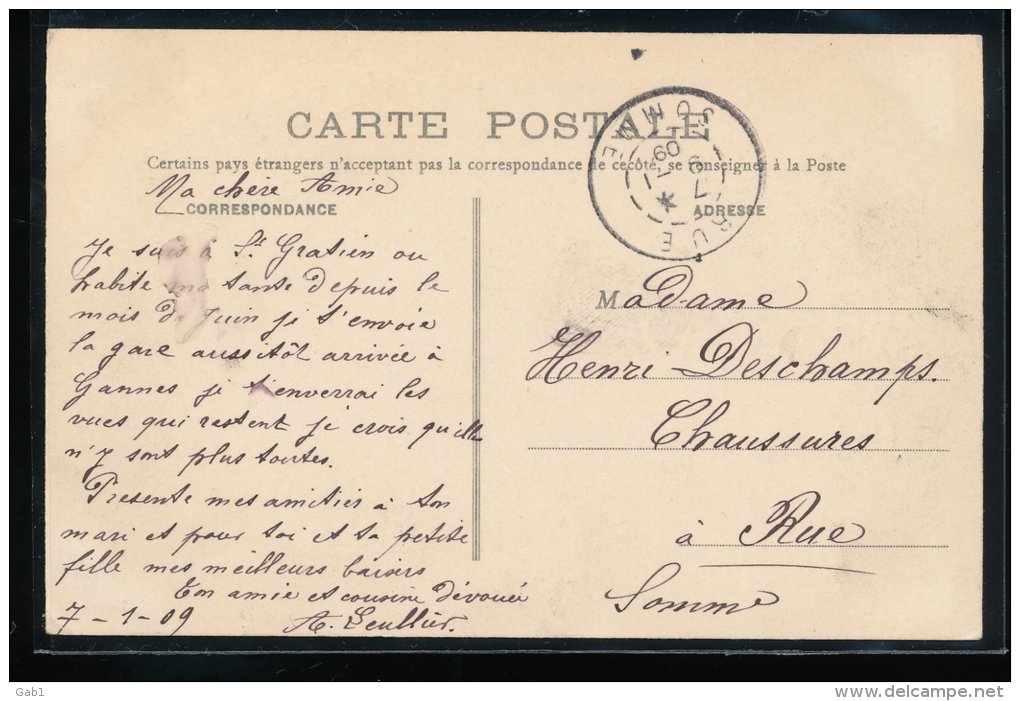 CARTE POSTALE
Certains pays étrangers n'acceptant pas la correspondance de ce côté, se renseigner à la Poste
SOMME
RUE
7 - 1
09
Ma chère Amie
CORRESPONDANCE
ADRESSE
Je suis à St Gratien ou
habite ma tante depuis le
mois de Juin je t'envoie
la gare aussitôt arrivée à
Gannes je t'enverrai les
vues qui restent je crois qu'elle
n'y sont plus toutes.
Presente mes amitiés à ton
mari et pour toi et ta petite
fille mes meilleurs baisers
Ton amie et cousine dévouée
7 - 1 - 09
A. Leullier.
Madame
Henri Deschamps.
Chaussures
à Rue
Somme
Gab1
www.delcampe.net